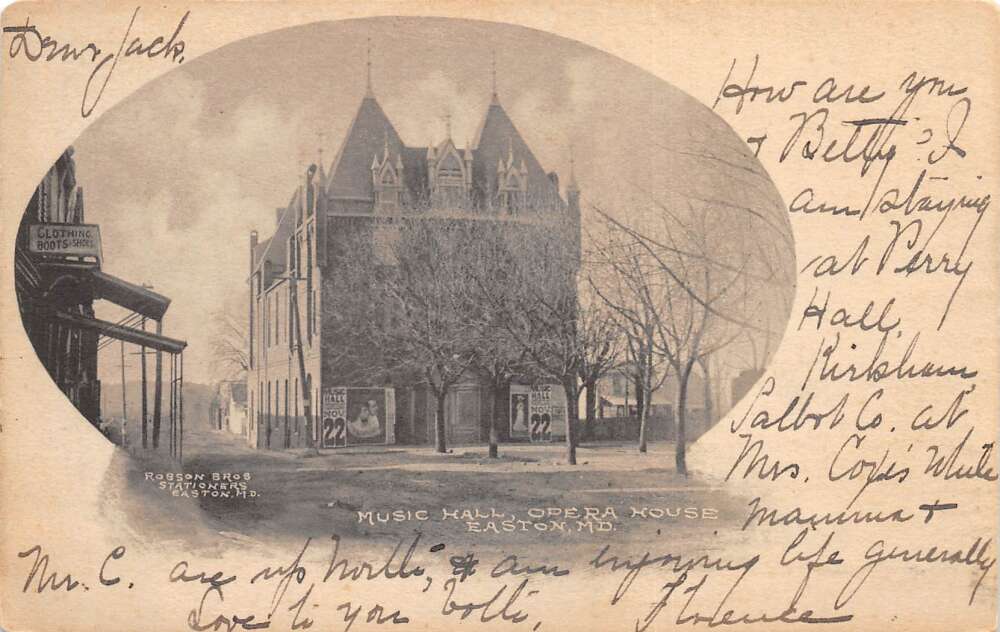 Dear Jack,
How are you
& Betty? I
am staying
at Perry
Hall,
Kirkham,
Talbot Co. at
Mrs. Cox's while
Mamma &
Mr. C. are up North, & am enjoying life generally
Love to you both,
Florence
CLOTHING.
BOOTS & SHOES
MUSIC
HALL
NOV
22
MUSIC
HALL
NOV
22
ROBSON BROS
STATIONERS
EASTON, MD.
MUSIC HALL, OPERA HOUSE
EASTON, MD.